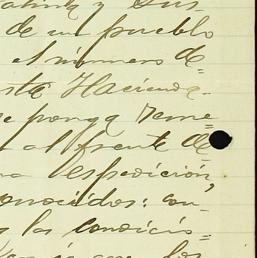 y
de un pueblo
el número de=
Hacienda.
se ponga Reme=
al frente de=
Expedición,
conocidos: con-
y las condicio=
los